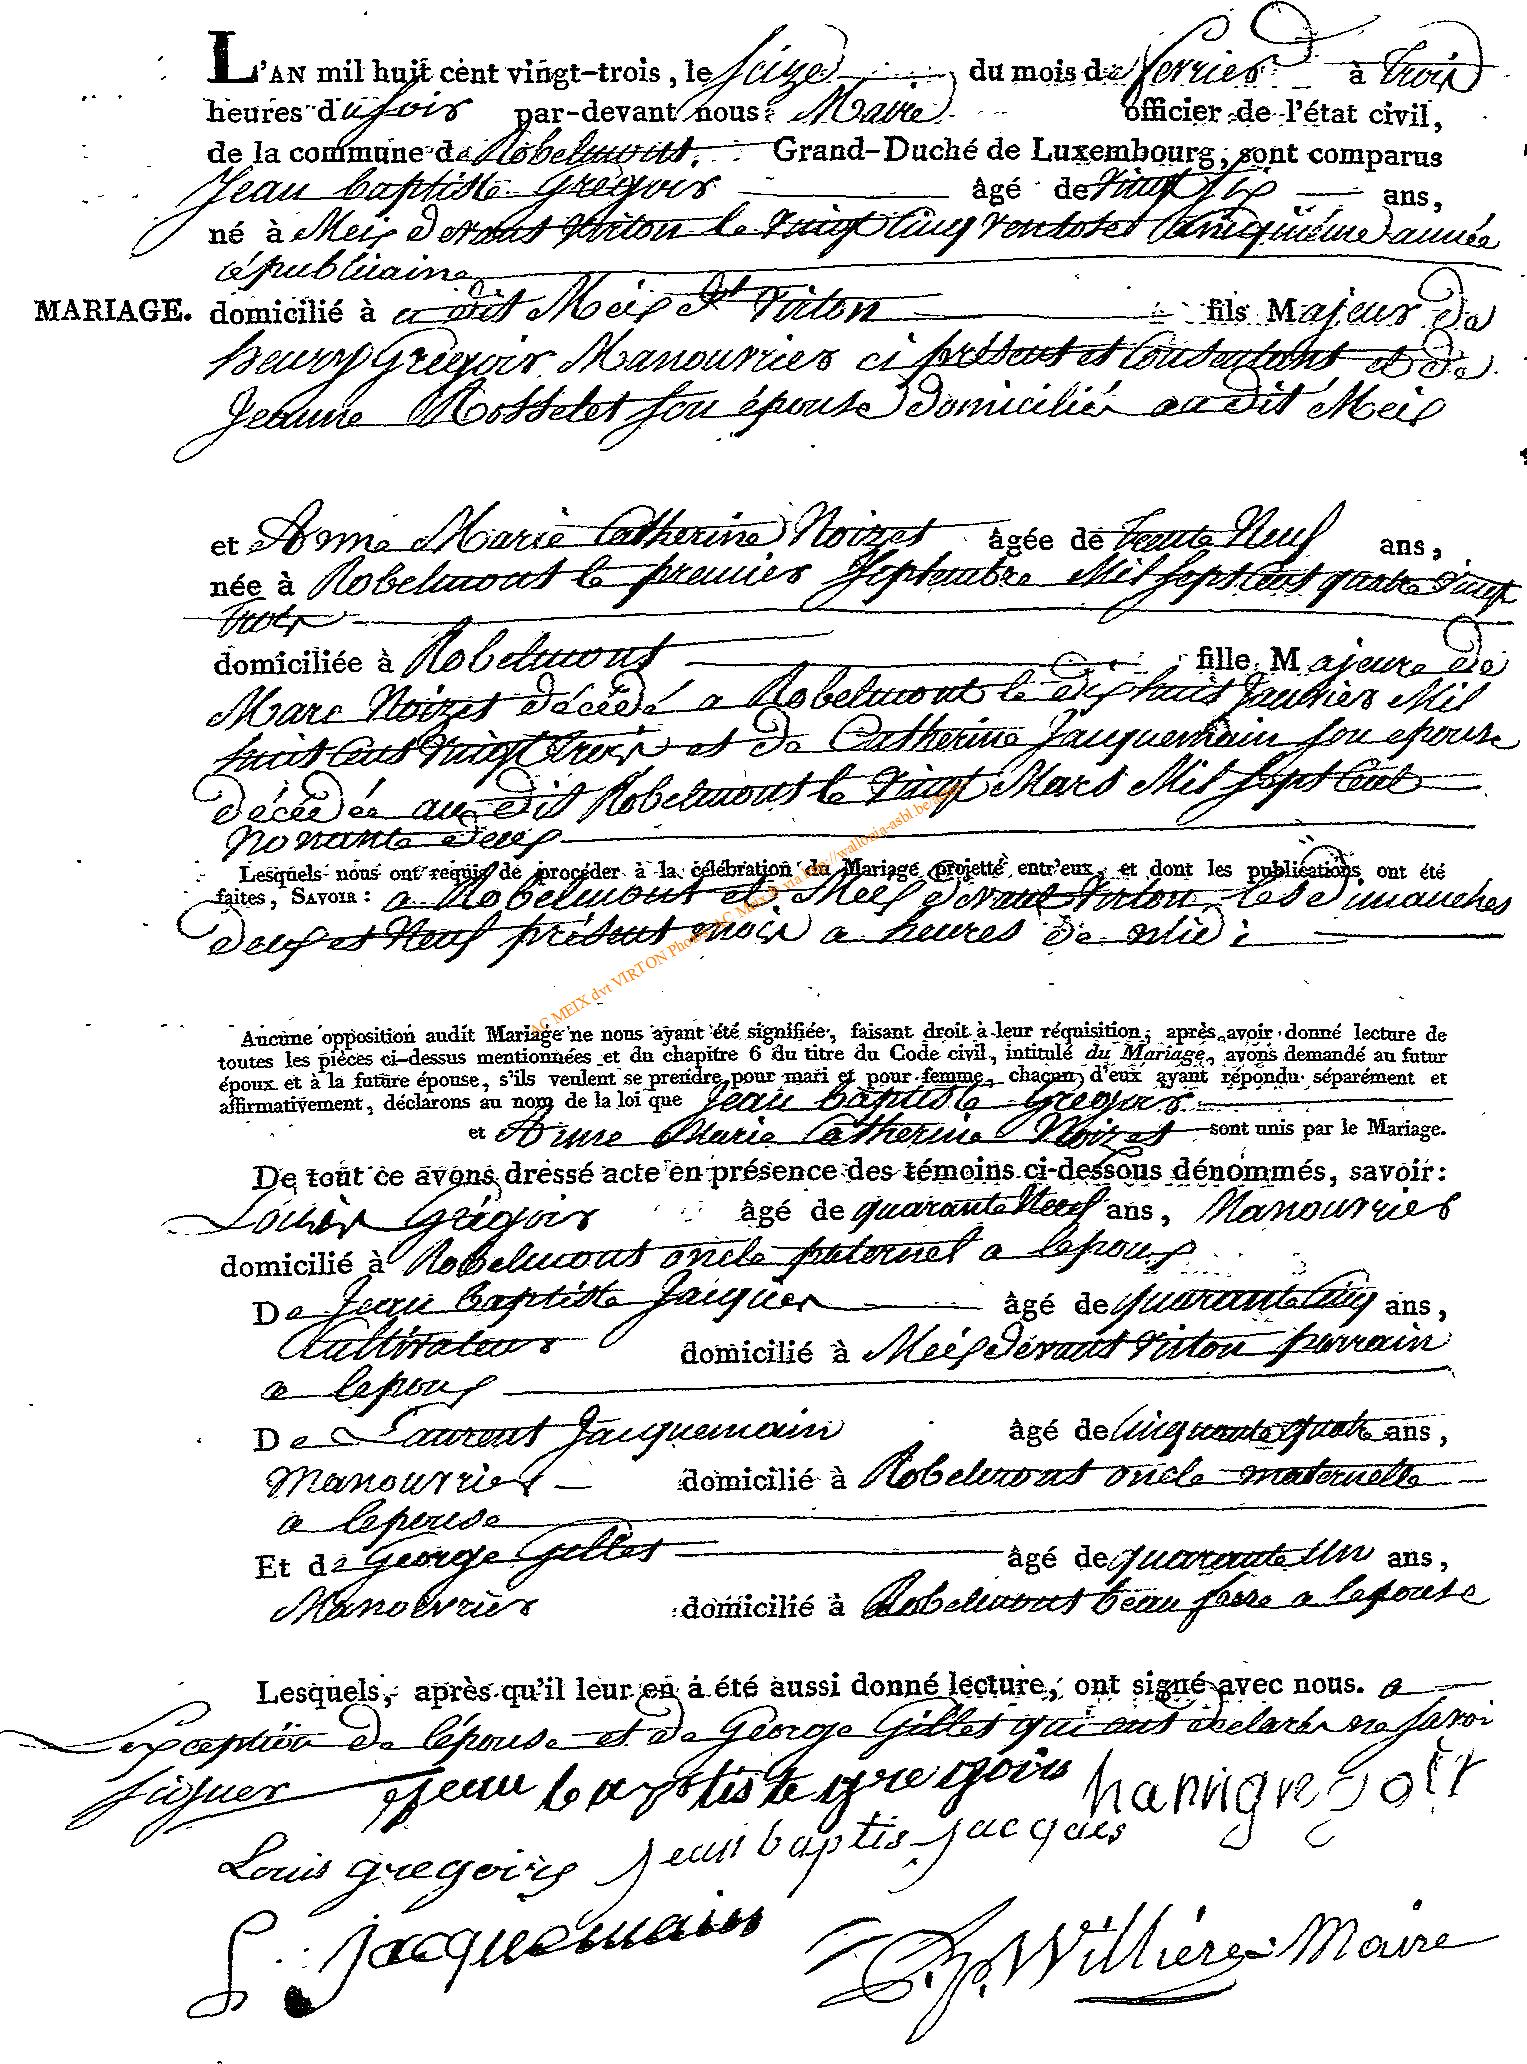 L'AN mil huit cent vingt-trois, le seize du mois de fevrier à trois
heures du soir par-devant nous Maire officier de l'état civil,
de la commune de Robelmont. Grand-Duché de Luxembourg, sont comparus
Jean baptiste Grégoir âgé de vingt six ans,
né à Meix devant Virton le vingt cinq ventose cinquiéme année
républicaine
MARIAGE. domicilié à a dit Meix dt Virton fils Majeur de
henry Grégoir Manouvrier ci présent et consentant et de
Jeanne Rosselet son épouse domicilié au dit Meix
et Anne Marie Catherine Noizet âgée de trente Neuf ans,
née à Robelmont le premier Septembre Mil sept cent quatre vingt
trois
domiciliée à Robelmont fille Majeure de
Marc Noizet décédé a Robelmont le dix huit Janvier Mil
huit cent vingt trois et de Catherine Jacquemain son epouse
décédée au dit Robelmont le vingt Mars Mil sept cent
Nonante deux
Lesquels nous ont requis de procéder à la célébration du Mariage projetté entr'eux, et dont les publications ont été
faites, SAVOIR : a Robelmont et Meix devant Virton, les dimanches
deux et Neuf présent mois a heures de midi
AC MEIX dvt VIRTON Photos AC Meix via http://wallonia-asbl.be/
Aucune opposition audit Mariage ne nous ayant été signifiée, faisant droit à leur réquisition; après avoir donné lecture de
toutes les pièces ci-dessus mentionnées et du chapitre 6 du titre du Code civil, intitulé du Mariage, avons demandé au futur
époux et à la future épouse, s'ils veulent se prendre pour mari et pour femme, chacun d'eux ayant répondu séparément et
affirmativement, déclarons au nom de la loi que Jean baptiste Gregoir
et Anne Marie Catherine Noizet sont unis par le Mariage.
De tout ce avons dressé acte en présence des témoins ci-dessous dénommés, savoir:
Louis Grégoir âgé de quarante Neuf ans, Manouvrier
domicilié à Robelmont oncle paternel a lepoux
De Jean baptiste Jacques âgé de quarante cinq ans,
Cultivateur domicilié à Meix devant Virton parrain
a lepoux
De Laurent Jacquemain âgé de cinquante quatre ans,
manouvrier domicilié à Robelmont oncle maternelle
a lepouse
Et de George Gilles âgé de quarante un ans,
Manouvrier domicilié à Robelmont beau frere a lepouse
Lesquels, après qu'il leur en a été aussi donné lecture, ont signé avec nous. a
exception de lépouse et de George Gilles qui ont déclarés ne savoi
signer jean baptiste gregoire
Louis gregoire jean baptis jacques
L. Jacquemain Willière Maire